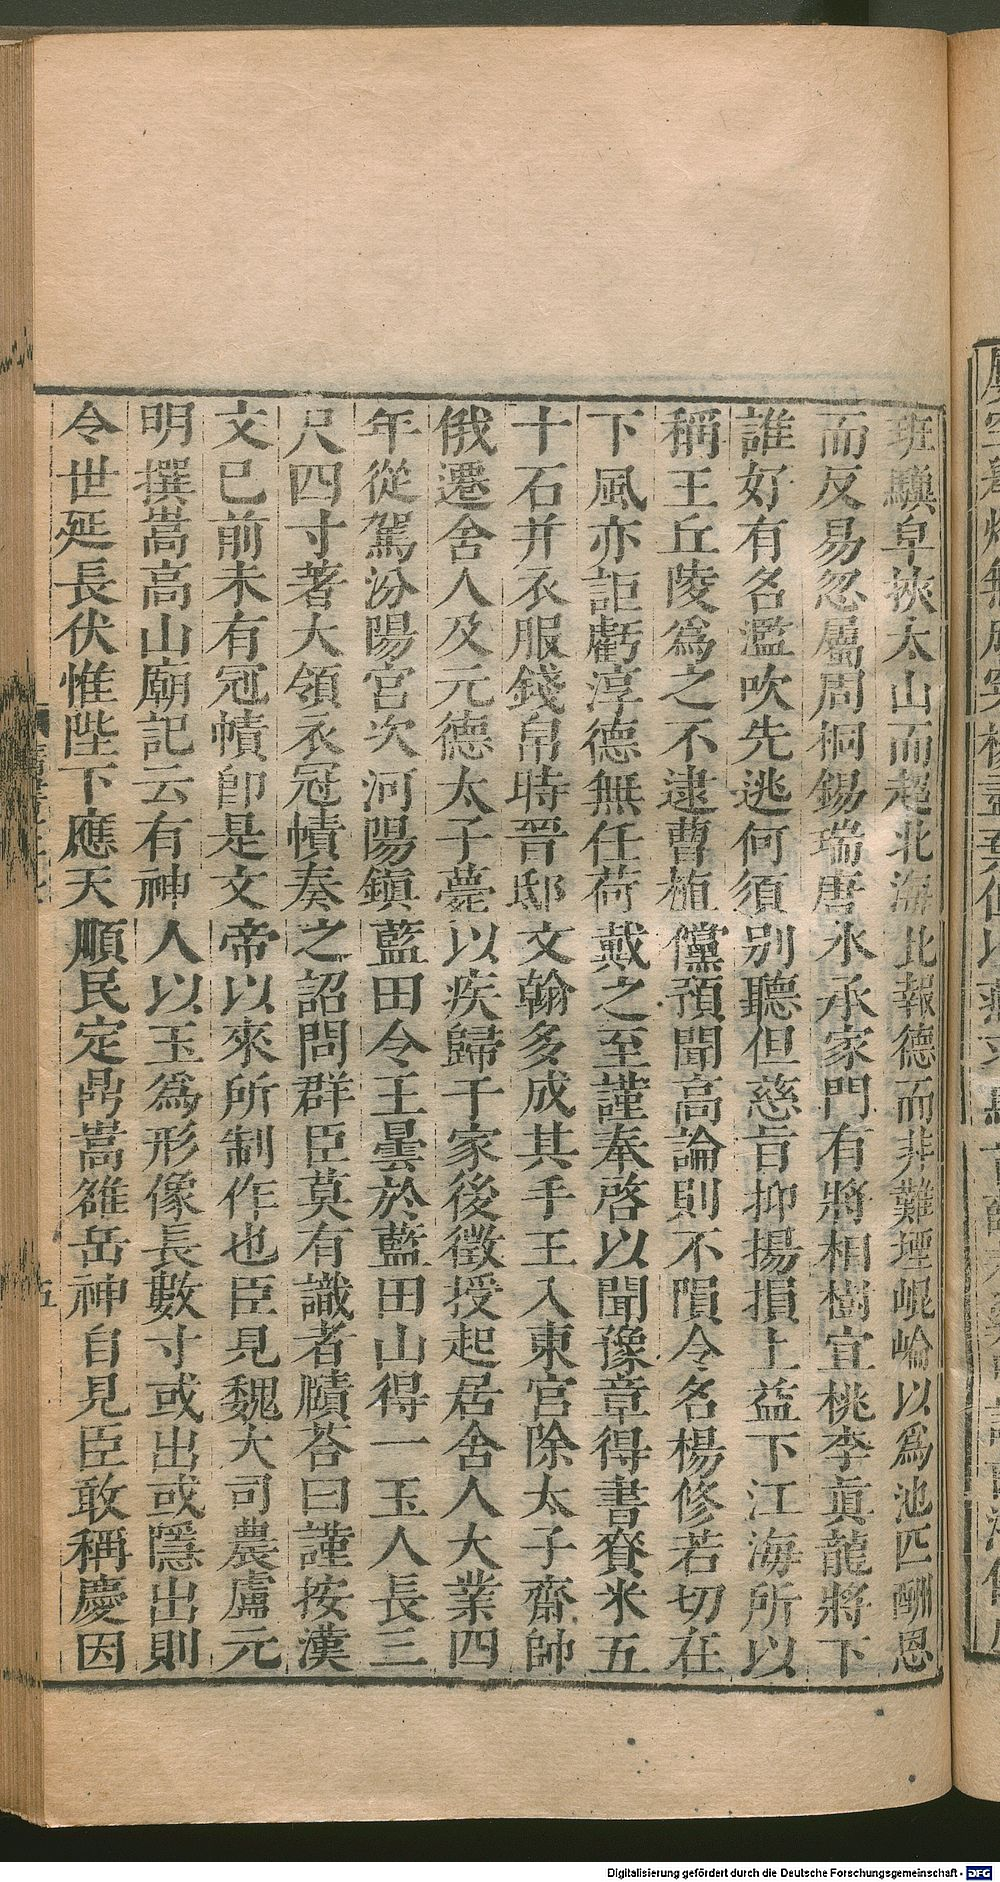 班驥皁挾太山而超北海比報德而非難堙崐崘以爲池匹酬恩
而反易忽屬周桐錫瑞唐水承家門有將相樹宜桃李眞龍將下
誰好有名濫吹先逃何須別聽但慈旨抑揚損上益下江海所以
稱王丘陵爲之不逮曹植儻預聞高論則不隕令名楊修若切在
下風亦詎虧淳德無任荷戴之至謹奉啓以聞豫章得書賚米五
十石并衣服錢帛時晉邸文翰多成其手王入東宮除太子齋帥
俄遷舍人及元德太子薨以疾歸于家後徵授起居舍人大業四
年從駕汾陽宮次河陽鎭藍田令王曇於藍田山得一玉人長三
尺四寸著大領衣冠幘奏之詔問群臣莫有識者賾荅曰謹按漢
文已前未有冠幘卽是文帝以來所制作也臣見魏大司農盧元
明撰嵩高山廟記云有神人以玉爲形像長數寸或出或隱出則
令世延長伏惟陛下應天順民定鼎嵩雒岳神自見臣敢稱慶因
五
Digitalisierung gefördert durch die Deutsche Forschungsgemeinschaft - DFG